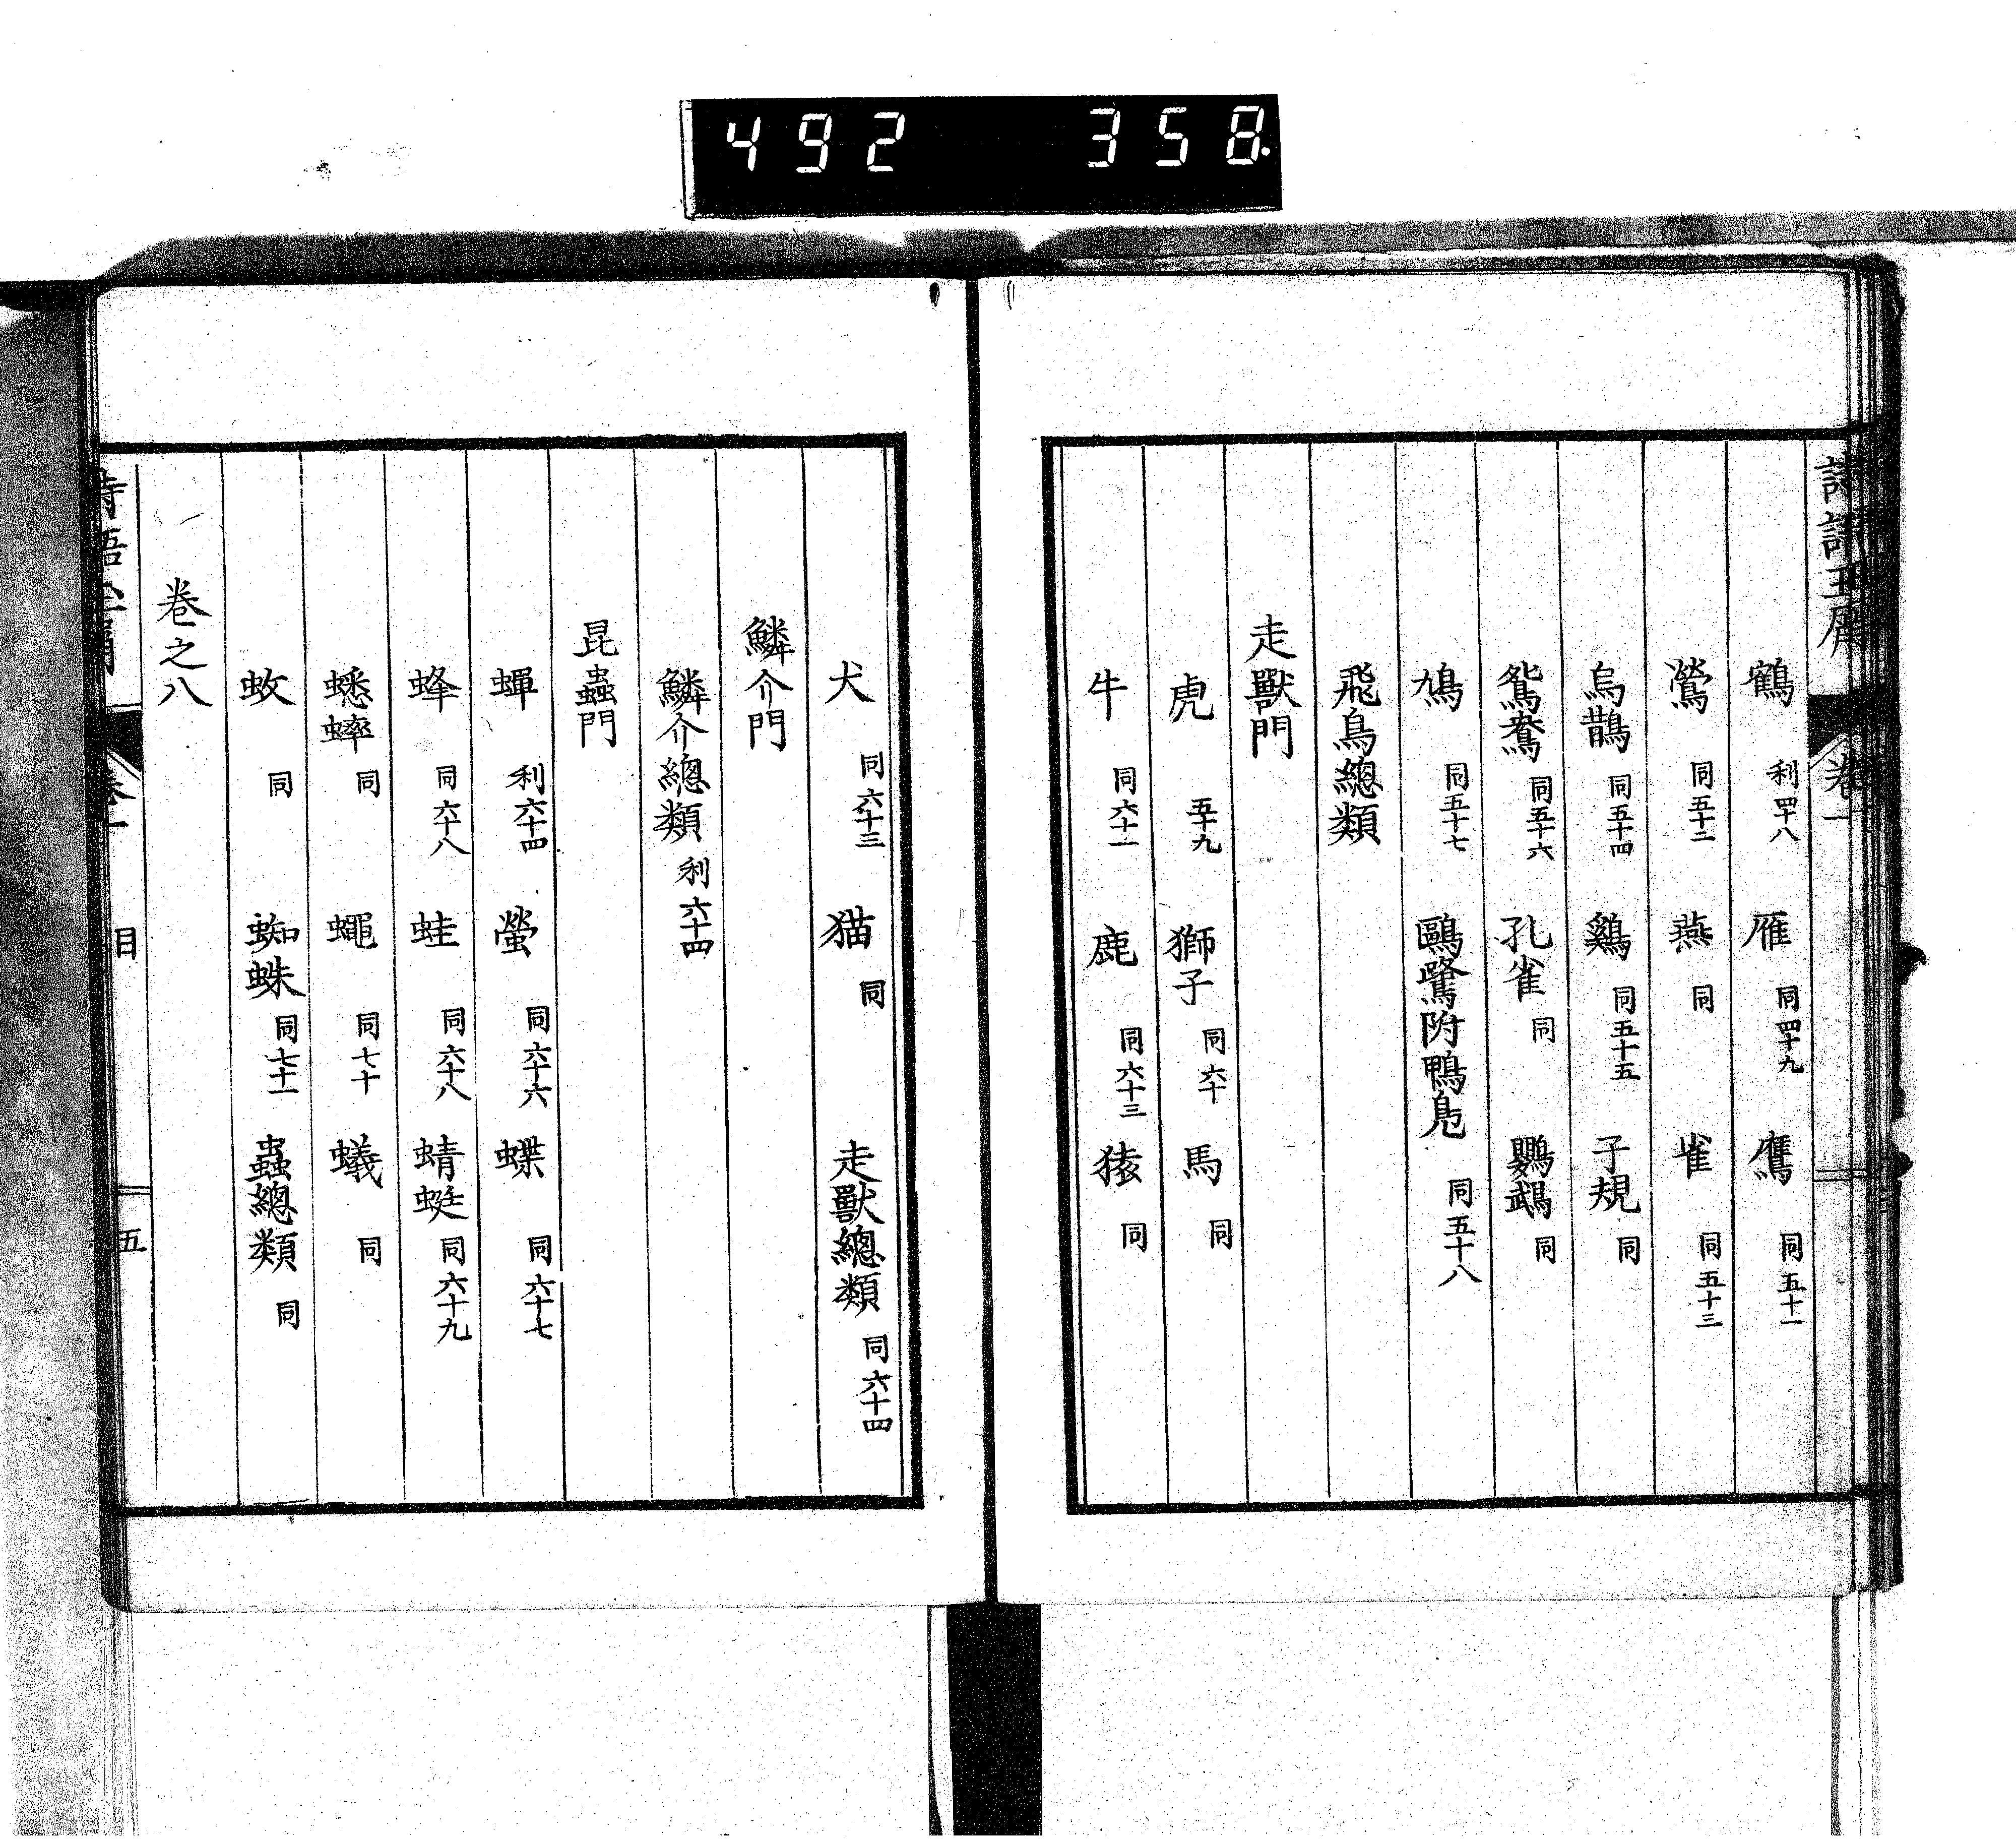 492 358
鶴 利四十八 雁 同四十九 鷹 同五十一
鶯 同五十二 燕 同 雀 同五十三
烏鵲 同五十四 鷄 同五十五 子規 同
鴛鴦 同五十六 孔雀 同 鸚鵡 同
鳩 同五十七 鷗鷺附鴨鳧 同五十八
飛鳥總類
走獸門
虎 五十九 獅子 同六十 馬 同
牛 同六十一 鹿 同六十三 猿 同
犬 同六十三 猫 同 走獸總類 同六十四
鱗介門
鱗介總類 利六十四
昆蟲門
蟬 利六十四 螢 同六十六 蝶 同六十七
蜂 同六十八 蛙 同六十八 蜻蜓 同六十九
蟋蟀 同 蠅 同七十 蟻 同
蚊 同 蜘蛛 同七十一 蟲總類 同
卷之八
卷一 目 五